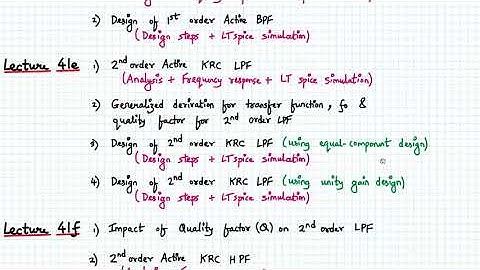 2) Design of 1st order Active BPF
(Design steps + LTspice simulation)
Lecture 41e 1) 2nd order Active KRC LPF
(Analysis + Frequency response + LT spice simulation)
2) Generalized derivation for transfer function, fo &
quality factor for 2nd order LPF
3) Design of 2nd order KRC LPF (using equal-component design)
(Design steps + LTspice simulation)
4) Design of 2nd order KRC LPF (using unity gain design)
(Design steps + LTspice simulation)
Lecture 41f 1) Impact of Quality factor (Q) on 2nd order LPF
2) 2nd order Active KRC HPF